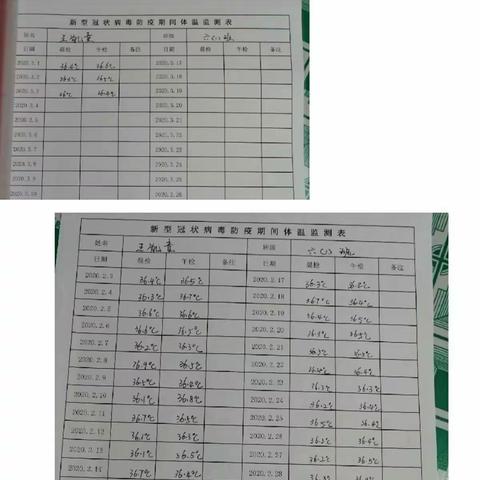 新型冠状病毒防疫期间体温监测表
姓名 班级 六(1)班
日期 晨检 午检 备注 日期 晨检 午检 备注
2020.3.1 36.4℃ 36.6℃ 2020.3.17
2020.3.2 36.6℃ 36.5℃ 2020.3.18
2020.3.3 36℃ 36.4℃ 2020.3.19
2020.3.4 2020.3.20
2020.3.5 2020.3.21
2020.3.6 2020.3.22
2020.3.7 2020.3.23
2020.3.8 2020.3.24
2020.3.9 2020.3.25
2020.3.10 2020.3.26
新型冠状病毒防疫期间体温监测表
姓名 班级 六(1)班
日期 晨检 午检 备注 日期 晨检 午检 备注
2020.2.3 36.4℃ 36.5℃ 2020.2.17 36.3℃ 36.2℃
2020.2.4 36.3℃ 36.7℃ 2020.2.18 36.7℃ 36.4℃
2020.2.5 36.6℃ 36.6℃ 2020.2.19 36.4℃ 36.5℃
2020.2.6 36.6℃ 36.5℃ 2020.2.20 36.5℃
2020.2.7 36.2℃ 36.3℃ 2020.2.21 36.3℃
2020.2.8 36.4℃ 36.5℃ 2020.2.22 36.4℃
2020.2.9 36.5℃ 36.4℃ 2020.2.23 36.3℃ 36.3℃
2020.2.10 36.1℃ 36.8℃ 2020.2.24 36.2℃ 36.4℃
2020.2.11 36.7℃ 36.5℃ 2020.2.25 36.5℃ 36.4℃
2020.2.12 36.1℃ 36.3℃ 2020.2.26 36.3℃ 36.4℃
2020.2.13 36.1℃ 36.5℃ 2020.2.27 36.2℃ 36.5℃
2020.2.14 36.7℃ 36.4℃ 2020.2.28